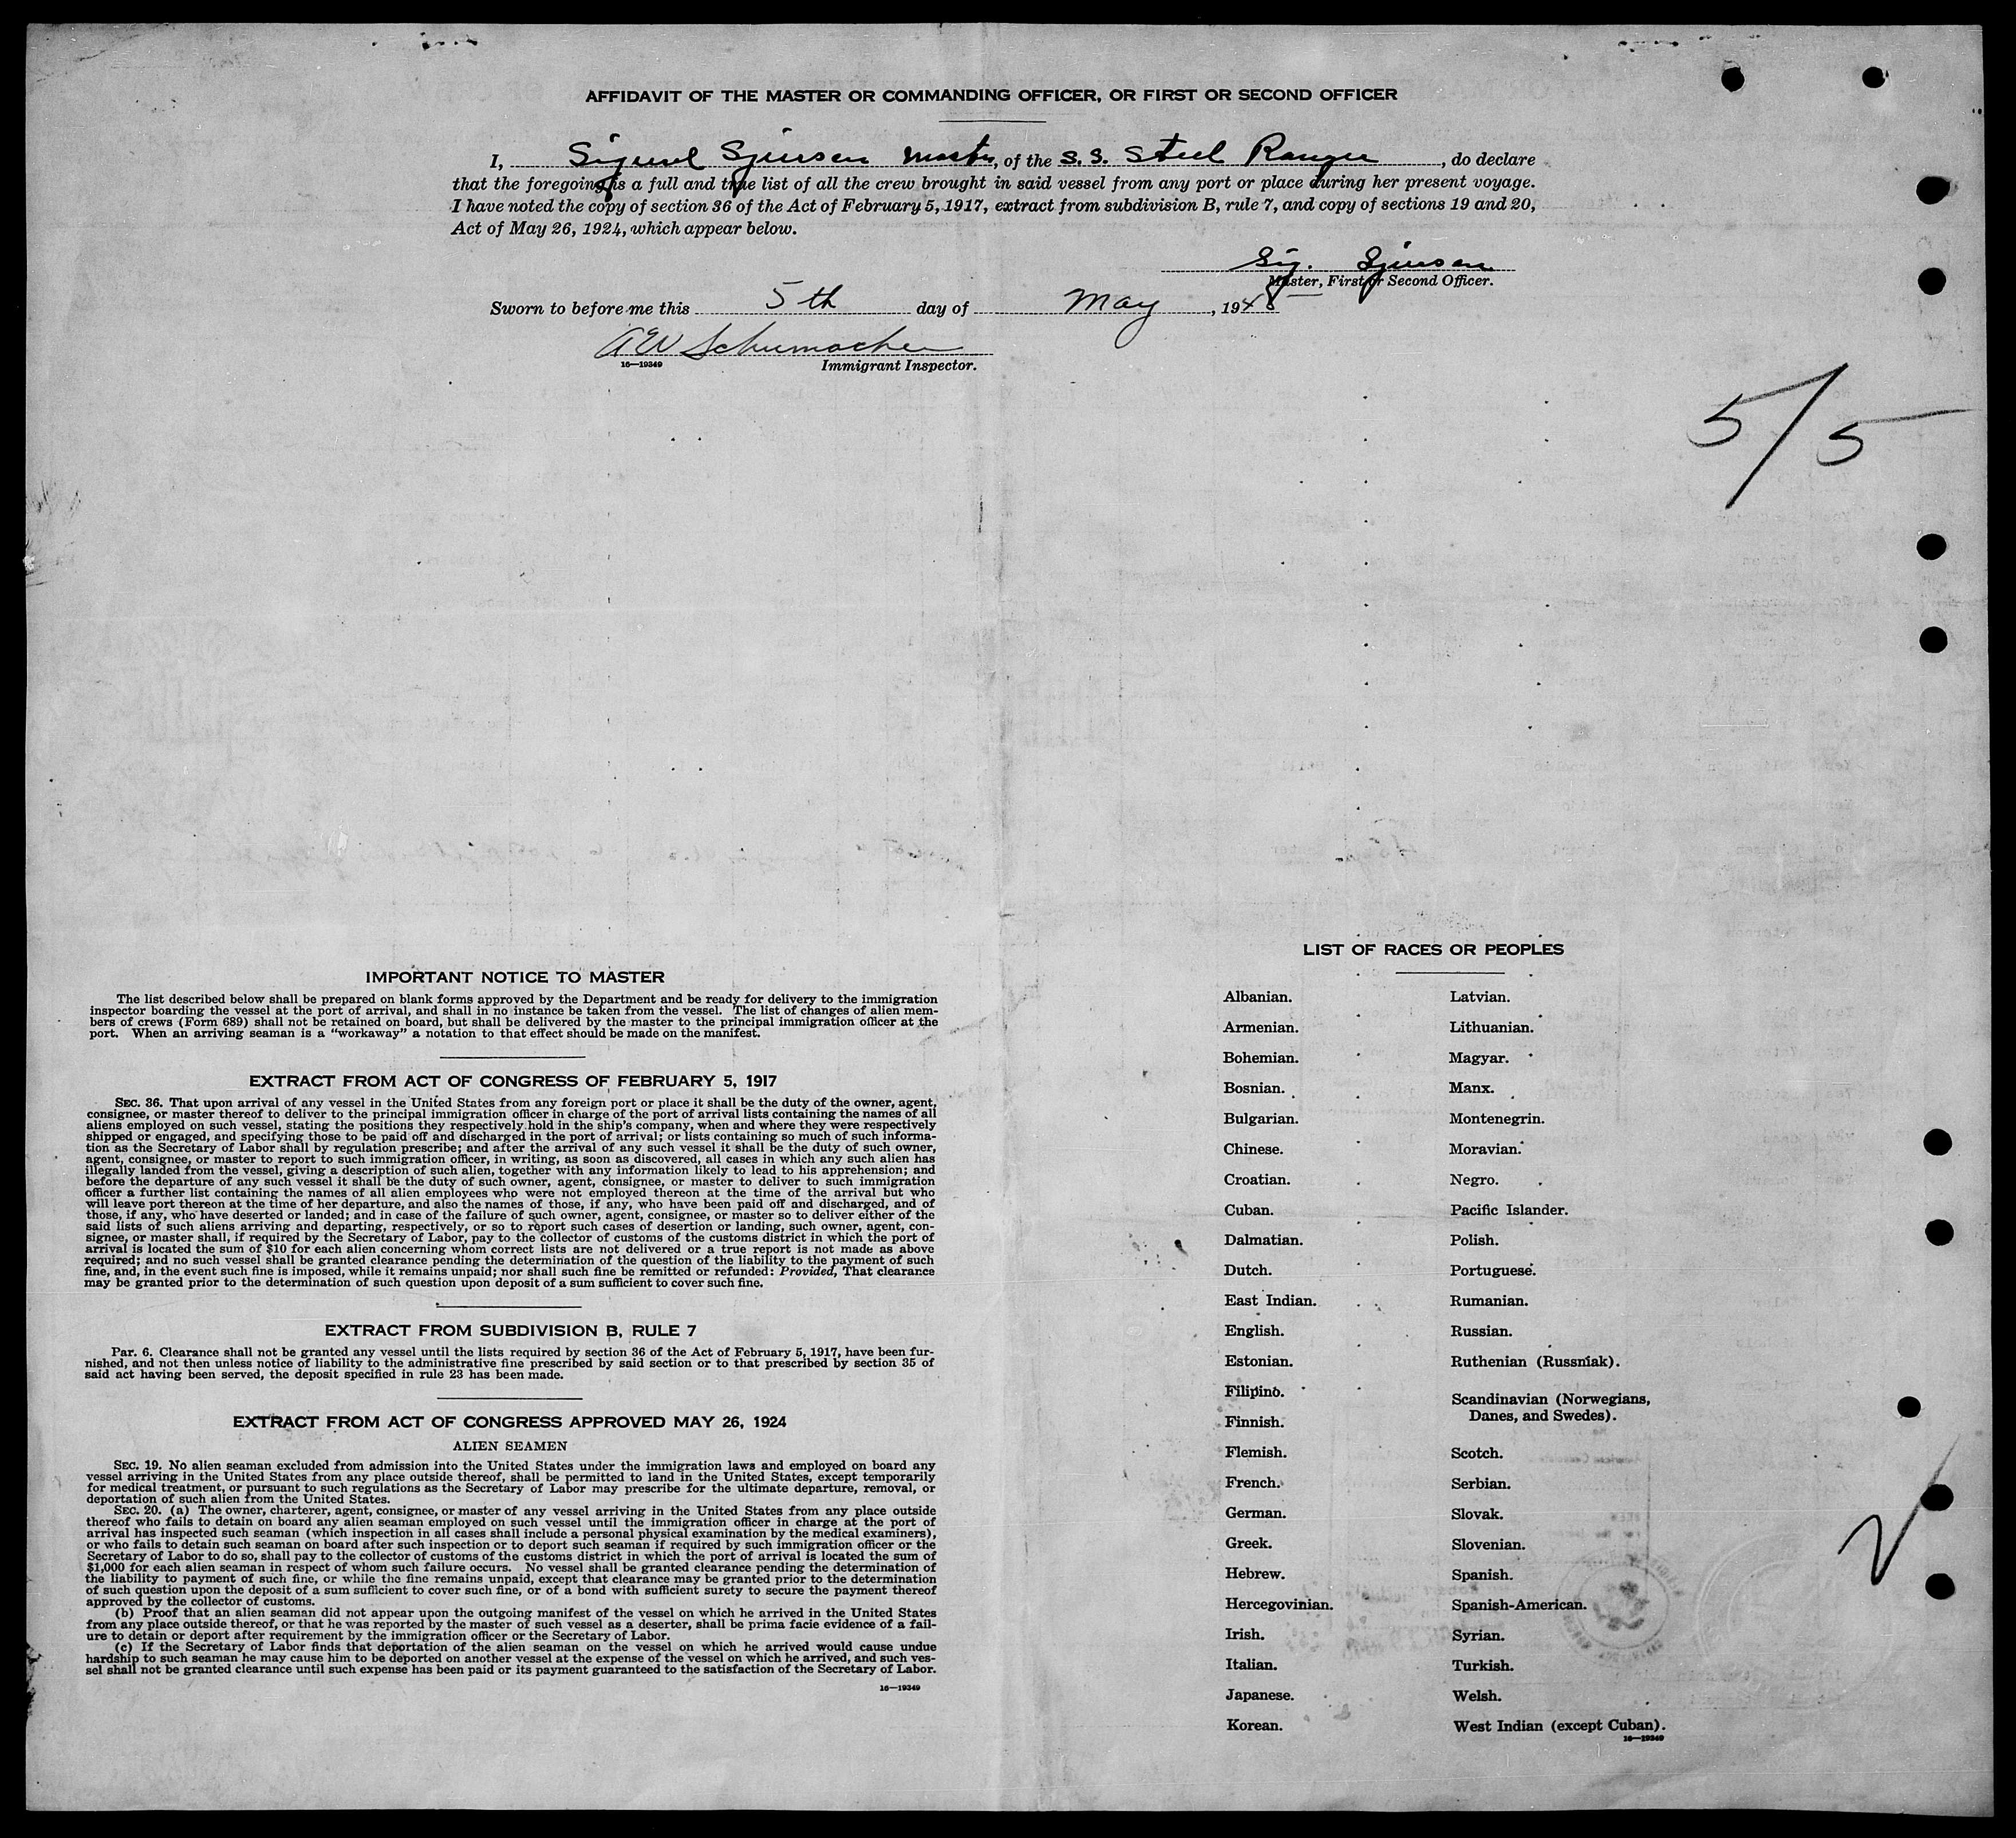 AFFIDAVIT OF THE MASTER OR COMMANDING OFFICER, OR FIRST OR SECOND OFFICER
I, Sigurd Sjursen Master, of the S. S. Steel Ranger, do declare
that the foregoing is a full and true list of all the crew brought in said vessel from any port or place during her present voyage.
I have noted the copy of section 36 of the Act of February 5, 1917, extract from subdivision B, rule 7, and copy of sections 19 and 20,
Act of May 26, 1924, which appear below.
Sig. Sjursen
Master, First or Second Officer.
Sworn to before me this 5th day of May, 1945
A W Schumacher
16—19349 Immigrant Inspector.
5/5
IMPORTANT NOTICE TO MASTER
The list described below shall be prepared on blank forms approved by the Department and be ready for delivery to the immigration
inspector boarding the vessel at the port of arrival, and shall in no instance be taken from the vessel. The list of changes of alien mem-
bers of crews (Form 689) shall not be retained on board, but shall be delivered by the master to the principal immigration officer at the
port. When an arriving seaman is a “workaway” a notation to that effect should be made on the manifest.
EXTRACT FROM ACT OF CONGRESS OF FEBRUARY 5, 1917
SEC. 36. That upon arrival of any vessel in the United States from any foreign port or place it shall be the duty of the owner, agent,
consignee, or master thereof to deliver to the principal immigration officer in charge of the port of arrival lists containing the names of all
aliens employed on such vessel, stating the positions they respectively hold in the ship's company, when and where they were respectively
shipped or engaged, and specifying those to be paid off and discharged in the port of arrival; or lists containing so much of such informa-
tion as the Secretary of Labor shall by regulation prescribe; and after the arrival of any such vessel it shall be the duty of such owner,
agent, consignee, or master to report to such immigration officer, in writing, as soon as discovered, all cases in which any such alien has
illegally landed from the vessel, giving a description of such alien, together with any information likely to lead to his apprehension; and
before the departure of any such vessel it shall be the duty of such owner, agent, consignee, or master to deliver to such immigration
officer a further list containing the names of all alien employees who were not employed thereon at the time of the arrival but who
will leave port thereon at the time of her departure, and also the names of those, if any, who have been paid off and discharged, and of
those, if any, who have deserted or landed; and in case of the failure of such owner, agent, consignee, or master so to deliver either of the
said lists of such aliens arriving and departing, respectively, or so to report such cases of desertion or landing, such owner, agent, con-
signee, or master shall, if required by the Secretary of Labor, pay to the collector of customs of the customs district in which the port of
arrival is located the sum of $10 for each alien concerning whom correct lists are not delivered or a true report is not made as above
required; and no such vessel shall be granted clearance pending the determination of the question of the liability to the payment of such
fine, and, in the event such fine is imposed, while it remains unpaid; nor shall such fine be remitted or refunded: Provided, That clearance
may be granted prior to the determination of such question upon deposit of a sum sufficient to cover such fine.
EXTRACT FROM SUBDIVISION B, RULE 7
Par. 6. Clearance shall not be granted any vessel until the lists required by section 36 of the Act of February 5, 1917, have been fur-
nished, and not then unless notice of liability to the administrative fine prescribed by said section or to that prescribed by section 35 of
said act having been served, the deposit specified in rule 23 has been made.
EXTRACT FROM ACT OF CONGRESS APPROVED MAY 26, 1924
ALIEN SEAMEN
SEC. 19. No alien seaman excluded from admission into the United States under the immigration laws and employed on board any
vessel arriving in the United States from any place outside thereof, shall be permitted to land in the United States, except temporarily
for medical treatment, or pursuant to such regulations as the Secretary of Labor may prescribe for the ultimate departure, removal, or
deportation of such alien from the United States.
SEC. 20. (a) The owner, charterer, agent, consignee, or master of any vessel arriving in the United States from any place outside
thereof who fails to detain on board any alien seaman employed on such vessel until the immigration officer in charge at the port of
arrival has inspected such seaman (which inspection in all cases shall include a personal physical examination by the medical examiners),
or who fails to detain such seaman on board after such inspection or to deport such seaman if required by such immigration officer or the
Secretary of Labor to do so, shall pay to the collector of customs of the customs district in which the port of arrival is located the sum of
$1,000 for each alien seaman in respect of whom such failure occurs. No vessel shall be granted clearance pending the determination of
the liability to payment of such fine, or while the fine remains unpaid, except that clearance may be granted prior to the determination
of such question upon the deposit of a sum sufficient to cover such fine, or of a bond with sufficient surety to secure the payment thereof
approved by the collector of customs.
(b) Proof that an alien seaman did not appear upon the outgoing manifest of the vessel on which he arrived in the United States
from any place outside thereof, or that he was reported by the master of such vessel as a deserter, shall be prima facie evidence of a fail-
ure to detain or deport after requirement by the immigration officer or the Secretary of Labor.
(c) If the Secretary of Labor finds that deportation of the alien seaman on the vessel on which he arrived would cause undue
hardship to such seaman he may cause him to be deported on another vessel at the expense of the vessel on which he arrived, and such ves-
sel shall not be granted clearance until such expense has been paid or its payment guaranteed to the satisfaction of the Secretary of Labor.
16—19349
LIST OF RACES OR PEOPLES
Albanian.
Armenian.
Bohemian.
Bosnian.
Bulgarian.
Chinese.
Croatian.
Cuban.
Dalmatian.
Dutch.
East Indian.
English.
Estonian.
Filipino.
Finnish.
Flemish.
French.
German.
Greek.
Hebrew.
Hercegovinian.
Irish.
Italian.
Japanese.
Korean.
Latvian.
Lithuanian.
Magyar.
Manx.
Montenegrin.
Moravian.
Negro.
Pacific Islander.
Polish.
Portuguese.
Rumanian.
Russian.
Ruthenian (Russniak).
Scandinavian (Norwegians,
Danes, and Swedes).
Scotch.
Serbian.
Slovak.
Slovenian.
Spanish.
Spanish-American.
Syrian.
Turkish.
Welsh.
West Indian (except Cuban).
16—19349